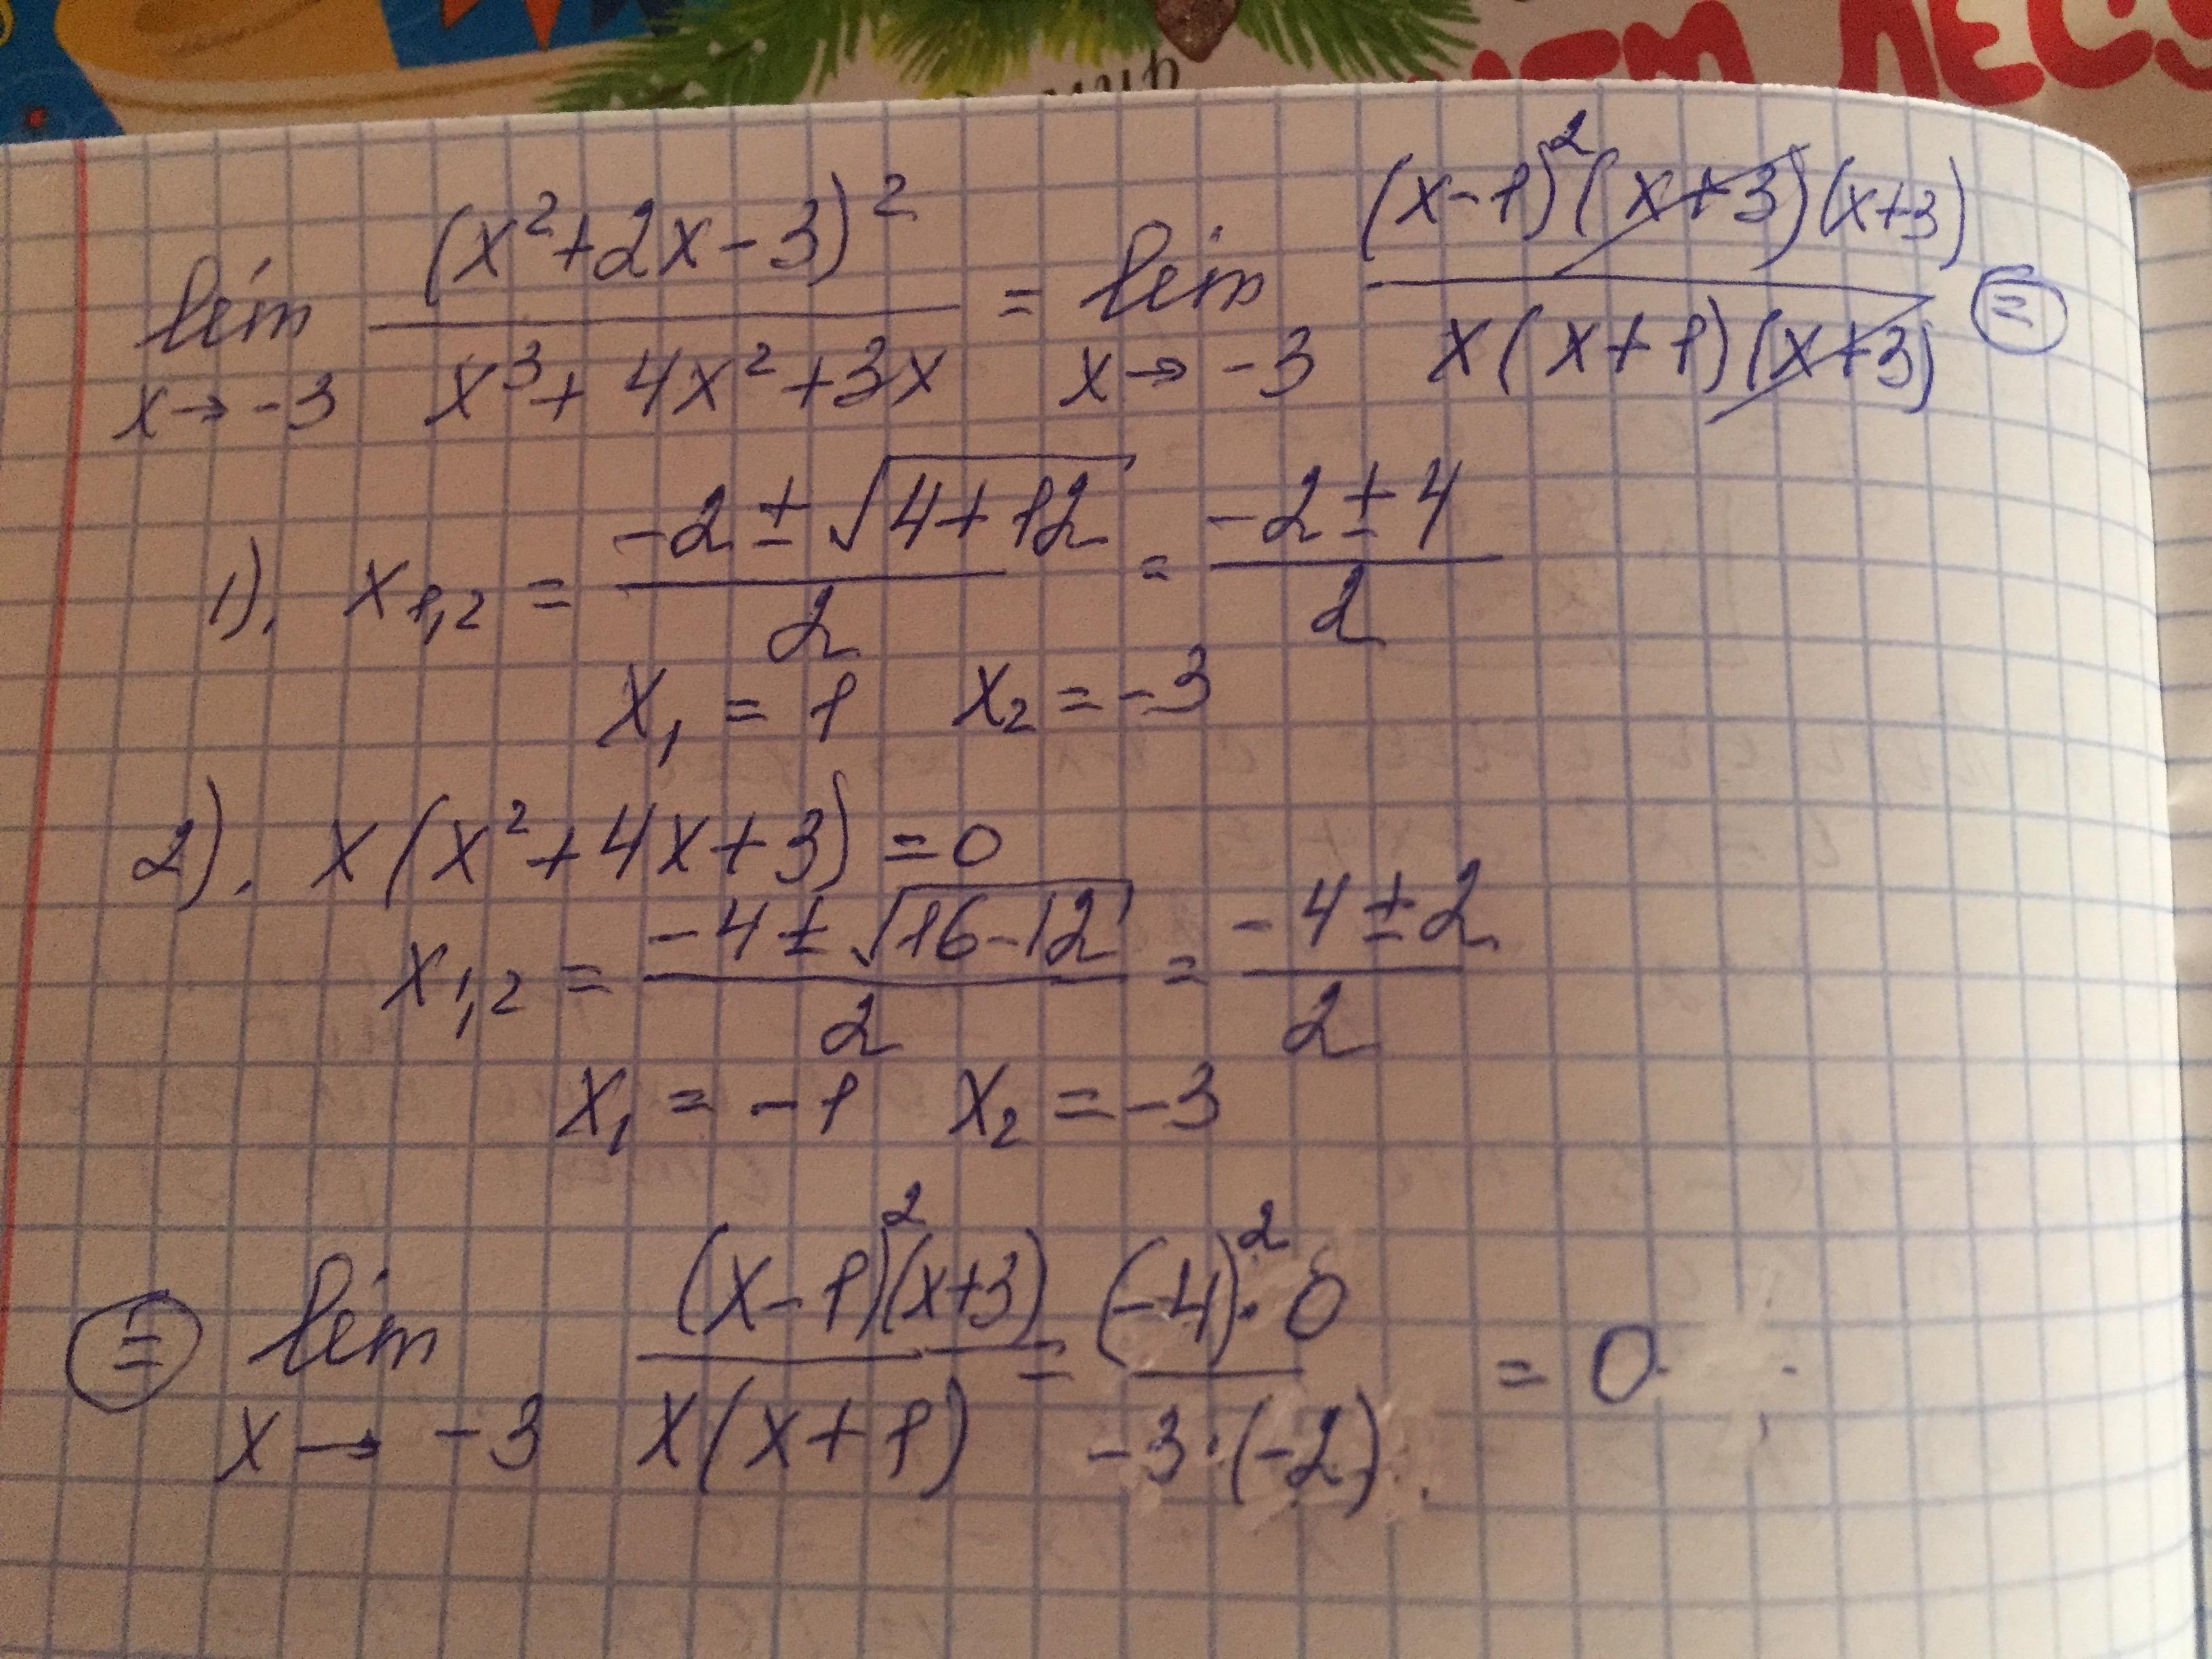 lim (x²+2x-3)² / (x³+4x²+3x) = lim (x-1)²(x+3)(x+3) / (x(x+1)(x+3)) =
x→-3 x→-3
1). x₁,₂ = (-2±√(4+12)) / 2 = (-2±4) / 2
x₁ = 1 x₂ = -3
2). x(x²+4x+3)=0
x₁,₂ = (-4±√(16-12)) / 2 = (-4±2) / 2
x₁ = -1 x₂ = -3
= lim (x-1)²(x+3) / (x(x+1)) = (-4)²·0 / (-3·(-2)) = 0
x→-3